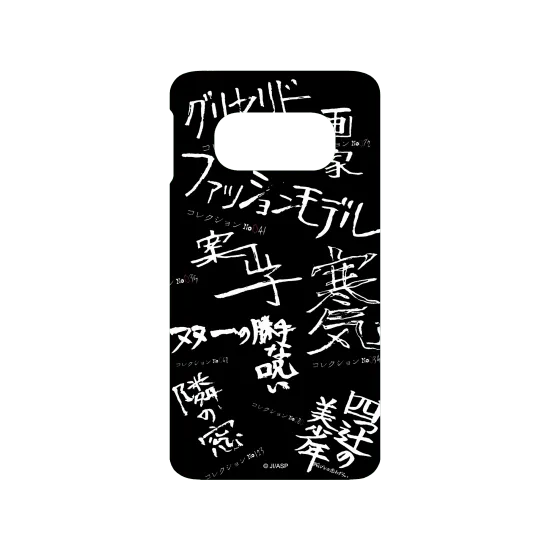 グリセリド
画家
ファッションモデル
コレクション No 041
案山子
寒気
コレクション No
スターの勝手な呪い
コレクション No
隣の窓
コレクション No 123
四つ辻の美少年
コレクション No
© JI/ASP